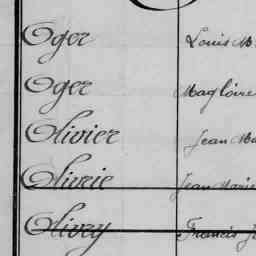 Oger Louis M
Oger Magloire
Olivier Jean Ma
Olivrie Jean Marie
Olivry Francis J